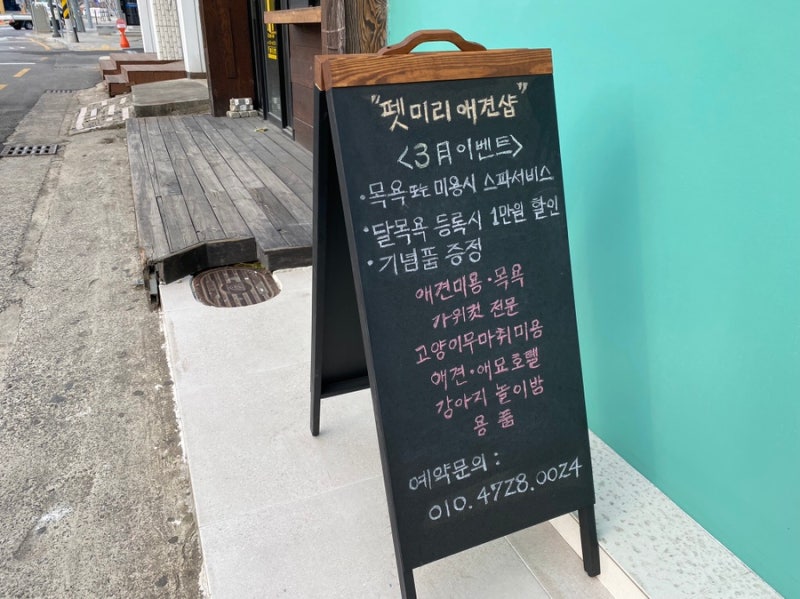 "펫미리 애견샵"
<3月 이벤트>
· 목욕 또는 미용시 스파서비스
· 달목욕 등록시 1만원 할인
· 기념품 증정
애견미용·목욕
가위컷 전문
고양이무마취미용
애견·애묘호텔
강아지 놀이방
용품
예약문의 :
010. 4728. 0024